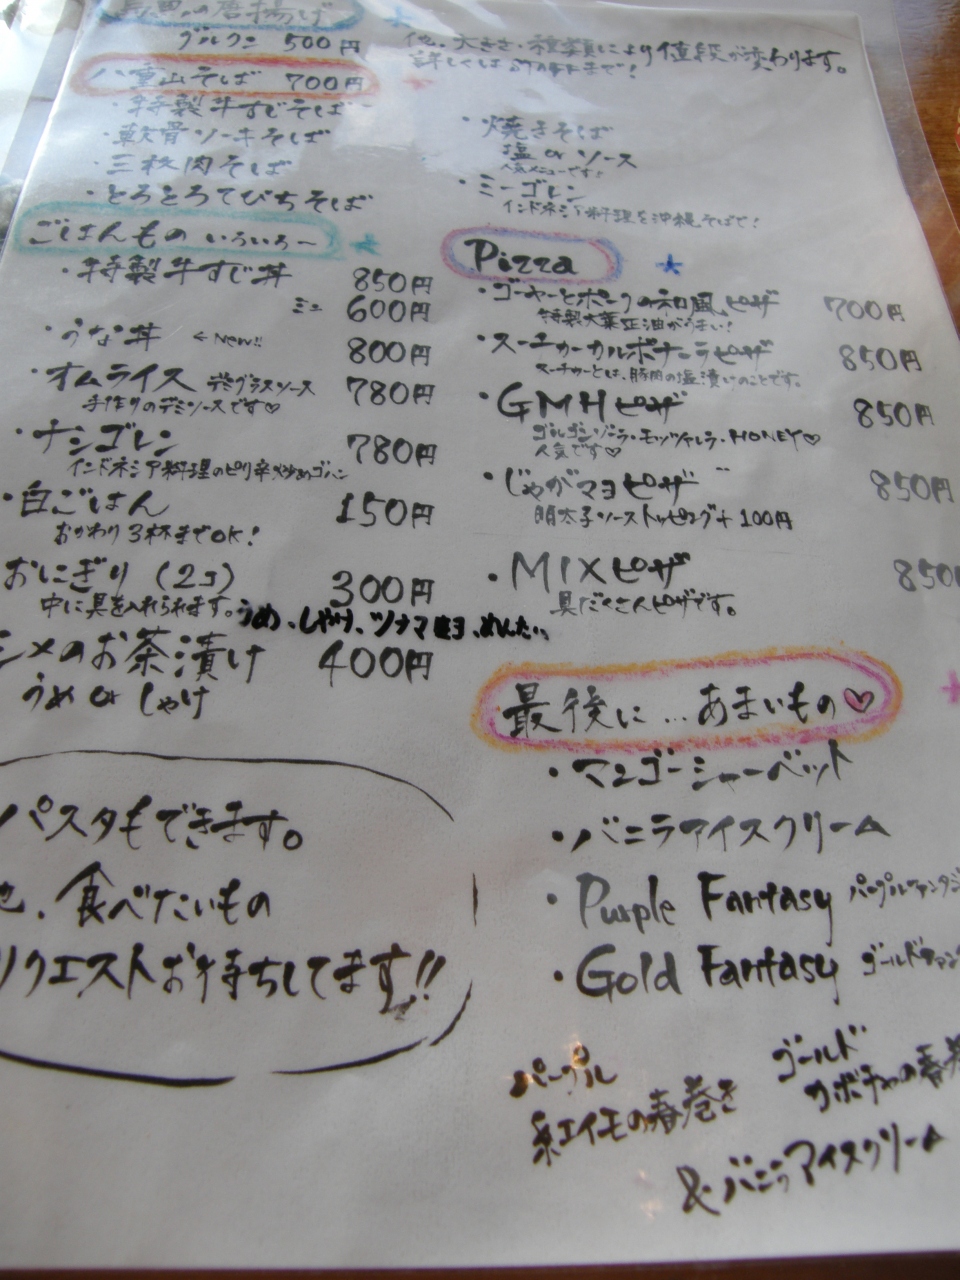 の唐揚げ
グルクン 500円
他、大きさ・種類により値段が変わります。
詳しくはSTAFFまで!
八重山そば 700円
・特製牛すじそば
・軟骨ソーキそば
・三枚肉そば
・とろとろてびちそば
・焼きそば
塩orソース
人気メニューです!
・ミーゴレン
インドネシア料理を沖縄そばで!
ごはんもの いろいろ〜
・特製牛すじ丼 850円
ミニ 600円
・うな丼 ←New!! 800円
・オムライス デミグラスソース 780円
手作りのデミソースです♡
・ナシゴレン 780円
インドネシア料理のピリ辛炒めゴハン
・白ごはん 150円
おかわり3杯までOK!
おにぎり(2コ) 300円
中に具を入れられます。うめ、しゃけ、ツナマヨ、めんたい
シメのお茶漬け 400円
うめ or しゃけ
パスタもできます。
他、食べたいもの
リクエストお待ちしてます!!
Pizza
・ゴーヤーとポークの和風ピザ 700円
特製大葉正油がうまい!
・スーチカーカルボナーラピザ 850円
スーチカーとは、豚肉の塩漬けのことです。
・GMHピザ 850円
ゴルゴンゾーラ・モッツァレラ・HONEY♡
人気です♡
・じゃがマヨピザ 850円
明太子ソーストッピング+100円
・MIXピザ 850
具だくさんピザです。
最後に…あまいもの♡
・マンゴーシャーベット
・バニラアイスクリーム
・Purple Fantasy パープルファンタジ
・Gold Fantasy ゴールドファンタ
パープル
紅イモの春巻き
ゴールド
カボチャの春巻
&バニラアイスクリーム